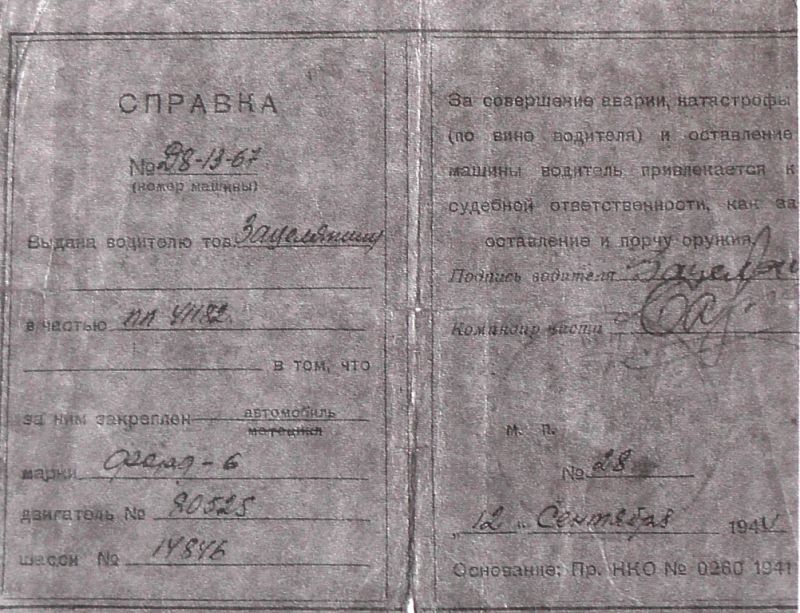 СПРАВКА
№ Д8-13-67
(номер машины)
Выдана водителю тов.
в частью пп 41182
в том, что
за ним закреплен автомобиль
мотоцикл
марки Форд-6
двигатель № 80525
шасси № 14846
За совершение аварии, катастрофы
(по вине водителя) и оставление
машины водитель привлекается к
судебной ответственности, как за
оставление и порчу оружия.
Подпись водителя
Командир части
м. п.
№ 28
"12" Сентября 194
Основание: Пр. НКО № 0260 1941